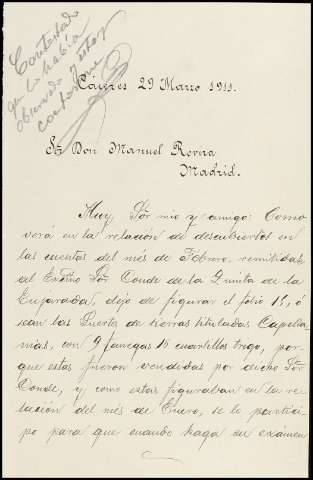 Contestado
que lo había
observado y estoy
conforme
Caceres 29 Marzo 1911.
Sr. Don Manuel Rovira
Madrid.
Muy Sor mio y amigo: Como
verá en la relación de descubiertos en
las cuentas del més de Febrero remitidas
al Excmo Sor Conde de la Quinta de la
Enjarada, dejo de figurar el folio 15, ó
sean las Suertes de tierras tituladas Capella-
nias, con 9 fanegas 18 cuartillos trigo, por-
que estas fueron vendidas por dicho Sor
Conde, y como estas figuraban en la re-
lación del més de Enero, se lo partici-
po para que cuando haga su exámen